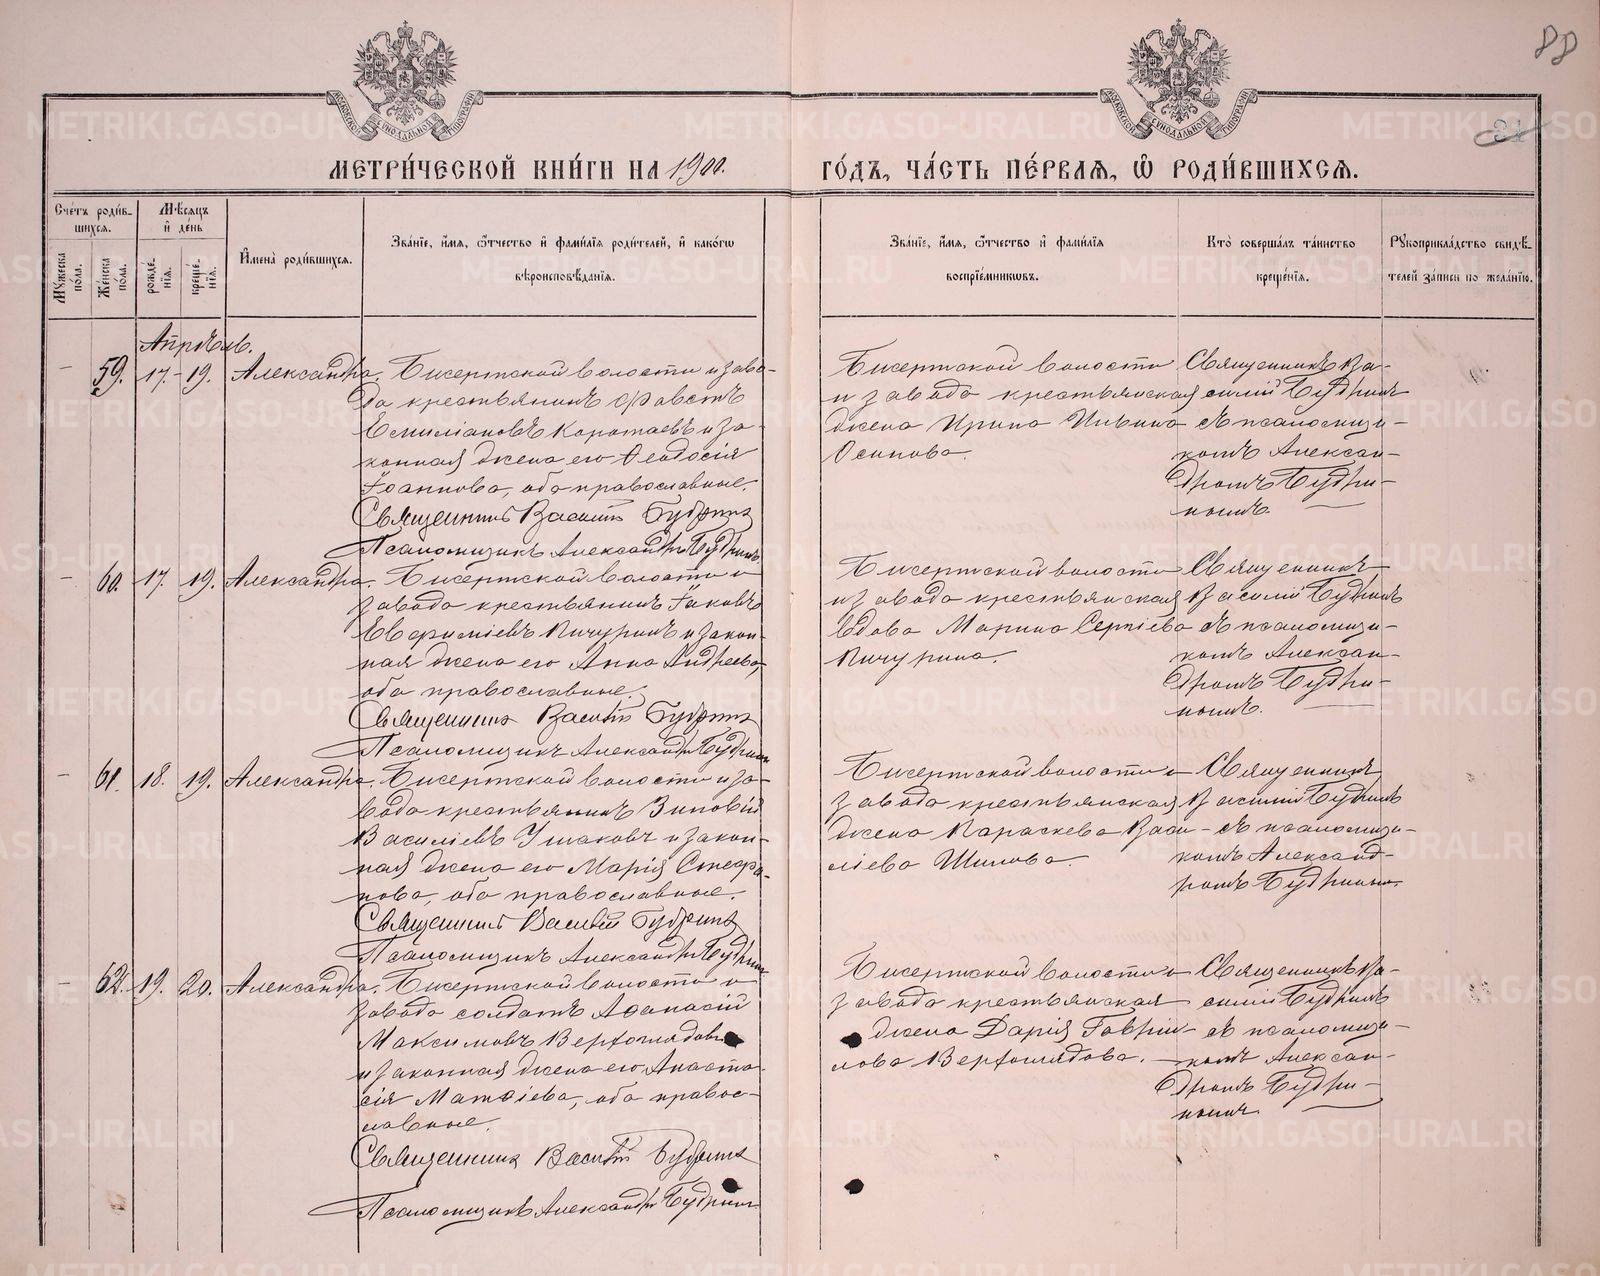 88
МОСКОВСКОЙ СѴНОДАЛЬНОЙ ТИПОГРАФІИ
МОСКОВСКОЙ СѴНОДАЛЬНОЙ ТИПОГРАФІИ
METRIKI.GASO-URAL.RU
МЕТРИ́ЧЕСКОЙ КНИ́ГИ НА 1900.
ГО́ДЪ, ЧА́СТЬ ПЕ́РВАѦ, Ѡ҆ РОДИ́ВШИХСѦ.
Сче́тъ роди́в-
шихсѧ.
Мꙋ́жеска по́ла.
Же́нска по́ла.
Мѣ́сѧцъ
и҆ де́нь
рожде́-
нїѧ.
креще́-
нїѧ.
И҆мена̀ роди́вшихсѧ.
Зва́нїе, и҆́мѧ, ѻ҆́тчество и҆ фами́лїѧ роди́телей, и҆ како́гѡ
вѣроисповѣ́данїѧ.
Зва́нїе, и҆́мѧ, ѻ҆́тчество и҆ фами́лїѧ
воспрїе́мникѡвъ.
Кто̀ соверша́лъ та́инство
креще́нїѧ.
Рꙋкоприкла́дство свидѣ́-
телей за́писи по жела́нїю.
Апрѣль.
– 59. 17. 19. Александра. Бисертской волости и заво-
да крестьянинъ Фавстъ
Емиліановъ Коротаевъ и за-
конная жена его Ѳеодосія
Іоаннова, оба православные.
Священникъ Василій Будринъ
Псаломщикъ Александръ Будринъ
Бисертской волости
и завода крестьянская
жена Ирина
Осипова.
Священникъ Ва-
силій Будринъ
съ псаломщи-
комъ Алексан-
дромъ Будри-
нымъ.
– 60. 17. 19. Александра. Бисертской волости и
завода крестьянинъ Іаковъ
Евфиміевъ Пичугинъ и закон-
ная жена его Анна Андреева,
оба православные.
Священникъ Василій Будринъ
Псаломщикъ Александръ Будринъ
Бисертской волости
и завода крестьянская
вдова Марина Сергіева
Пичугина.
Священникъ
Василій Будринъ
съ псаломщи-
комъ Алексан-
дромъ Будри-
нымъ.
– 61. 18. 19. Александра. Бисертской волости и за-
вода крестьянинъ Зиновій
Василіевъ Ушаковъ и закон-
ная жена его Марія Стефа-
нова, оба православные.
Священникъ Василій Будринъ
Псаломщикъ Александръ Будринъ
Бисертской волости и
завода крестьянская
жена Параскева Васи-
ліева Шилова.
Священникъ
Василій Будринъ
съ псаломщи-
комъ Александ-
ромъ Будринымъ.
– 62. 19. 20. Александра. Бисертской волости и
завода солдатъ Аѳанасій
Максимовъ Верхоглядовъ
и законная жена его Анаста-
сія Матѳіева, оба правос-
лавные.
Священникъ Василій Будринъ
Псаломщикъ Александръ Будринъ
Бисертской волости и
завода крестьянская
жена Дарія Гаврі-
лова Верхоглядова.
Священникъ Ва-
силій Будринъ
съ псаломщи-
комъ Алексан-
дромъ Будри-
нымъ.